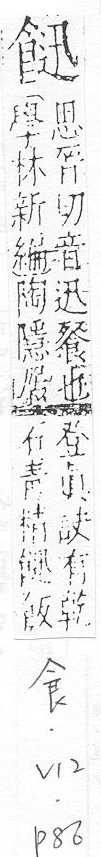 䭀
思晉切音迅餐也
學林新編陶隱居
登真訣有乾
石青精䭀飯
食.V12.P86